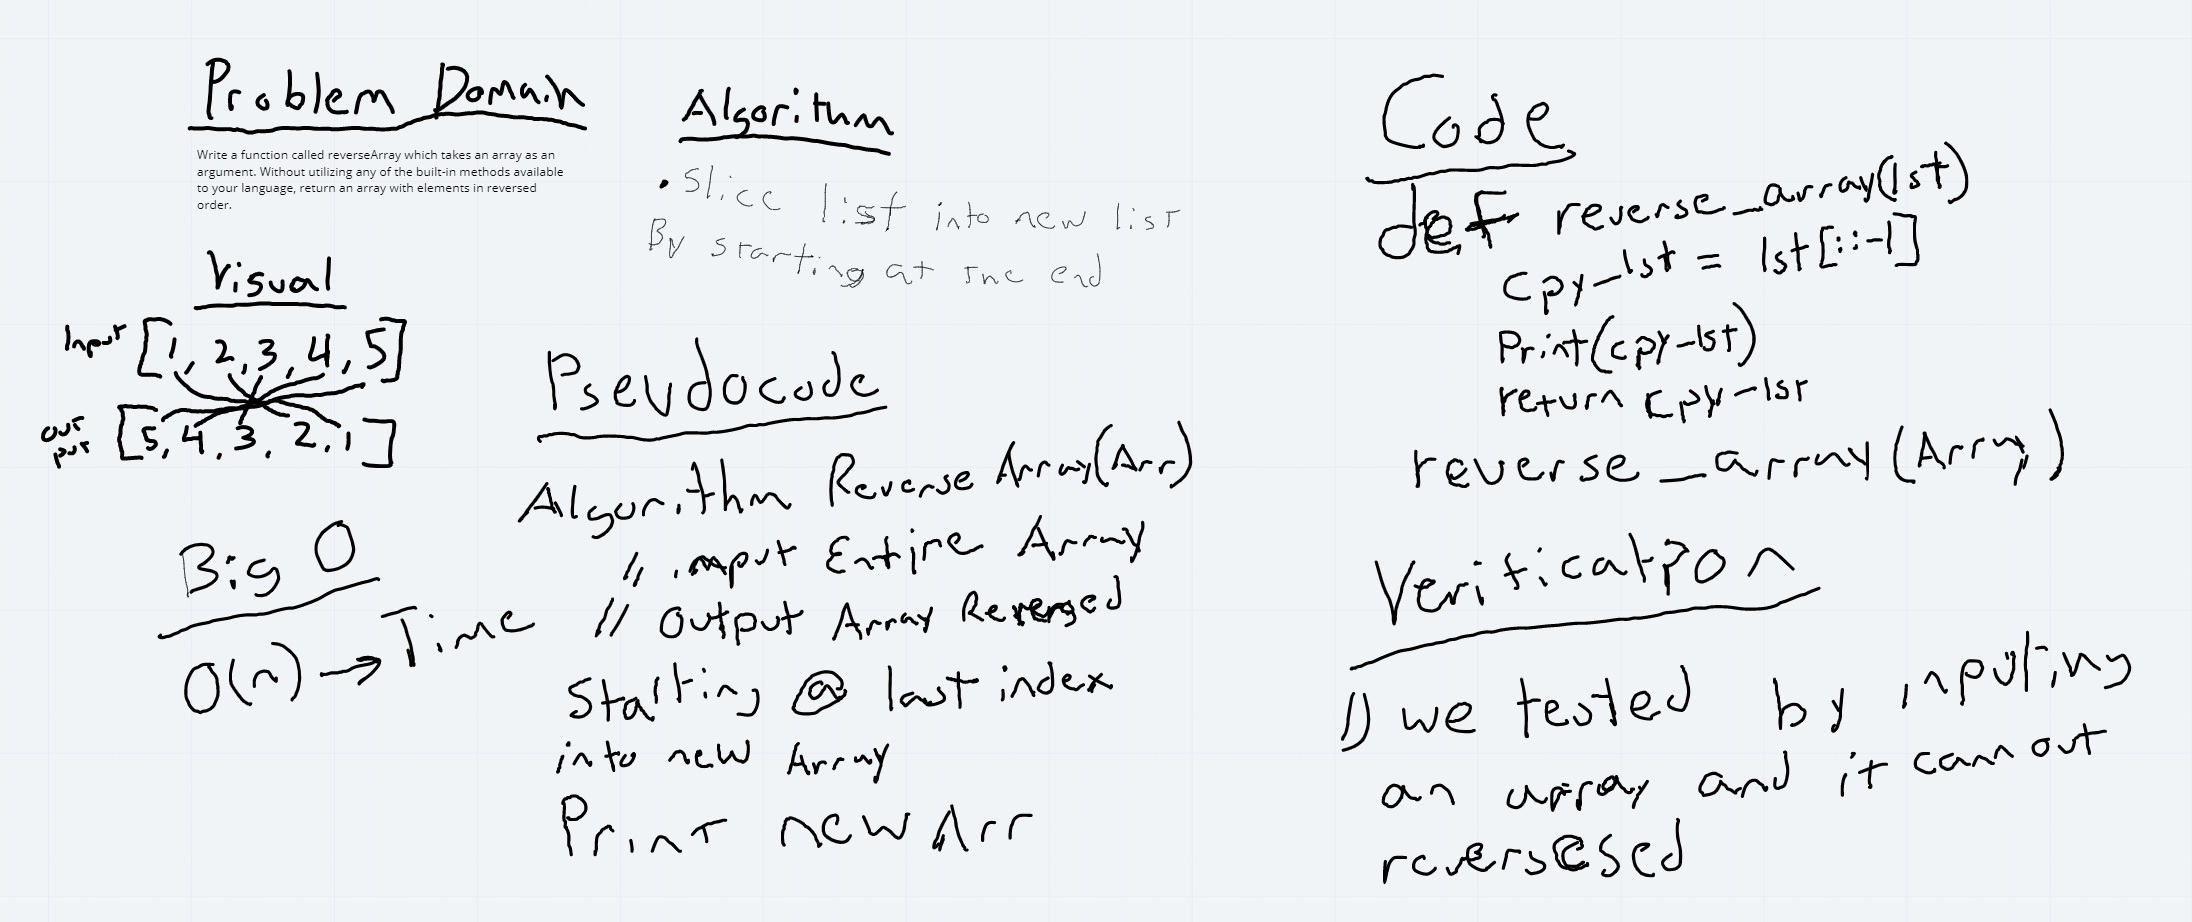 Problem Domain
Write a function called reverseArray which takes an array as an
argument. Without utilizing any of the built-in methods available
to your language, return an array with elements in reversed
order.
Visual
Input [1, 2, 3, 4, 5]
out
put [5, 4, 3, 2, 1]
Big O
O(n) → Time
Algorithm
• Slice list into new list
By starting at the end
Pseudocode
Algorithm Reverse Array(Arr)
// input Entire Array
// Output Array Reversed
Starting @ last index
into new Array
Print new Arr
Code
def reverse_array(lst)
cpy-lst = lst[::-1]
Print(cpy-lst)
return cpy-lst
reverse_array(Array)
Verification
1) we tested by inputing
an array and it cam out
reversesed